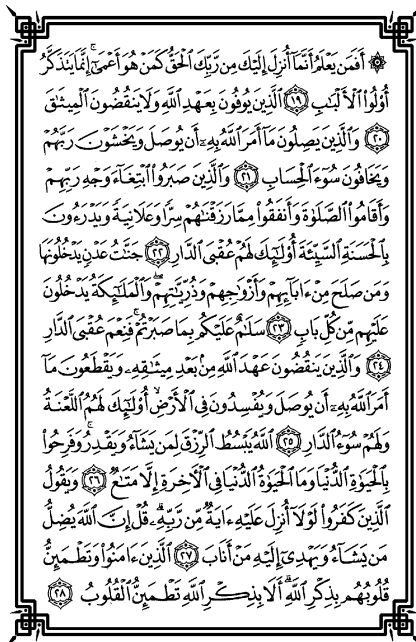 ۞ أَفَمَن يَعْلَمُ أَنَّمَآ أُنزِلَ إِلَيْكَ مِن رَّبِّكَ ٱلْحَقُّ كَمَنْ هُوَ أَعْمَىٰٓ ۚ إِنَّمَا يَتَذَكَّرُ
أُو۟لُوا۟ ٱلْأَلْبَٰبِ ١٩ ٱلَّذِينَ يُوفُونَ بِعَهْدِ ٱللَّهِ وَلَا يَنقُضُونَ ٱلْمِيثَٰقَ
٢٠ وَٱلَّذِينَ يَصِلُونَ مَآ أَمَرَ ٱللَّهُ بِهِۦٓ أَن يُوصَلَ وَيَخْشَوْنَ رَبَّهُمْ
وَيَخَافُونَ سُوٓءَ ٱلْحِسَابِ ٢١ وَٱلَّذِينَ صَبَرُوا۟ ٱبْتِغَآءَ وَجْهِ رَبِّهِمْ
وَأَقَامُوا۟ ٱلصَّلَوٰةَ وَأَنفَقُوا۟ مِمَّا رَزَقْنَٰهُمْ سِرًّا وَعَلَانِيَةً وَيَدْرَءُونَ
بِٱلْحَسَنَةِ ٱلسَّيِّئَةَ أُو۟لَٰٓئِكَ لَهُمْ عُقْبَى ٱلدَّارِ ٢٢ جَنَّٰتُ عَدْنٍ يَدْخُلُونَهَا
وَمَن صَلَحَ مِنْ ءَابَآئِهِمْ وَأَزْوَٰجِهِمْ وَذُرِّيَّٰتِهِمْ ۖ وَٱلْمَلَٰٓئِكَةُ يَدْخُلُونَ
عَلَيْهِم مِّن كُلِّ بَابٍ ٢٣ سَلَٰمٌ عَلَيْكُم بِمَا صَبَرْتُمْ ۚ فَنِعْمَ عُقْبَى ٱلدَّارِ
٢٤ وَٱلَّذِينَ يَنقُضُونَ عَهْدَ ٱللَّهِ مِنۢ بَعْدِ مِيثَٰقِهِۦ وَيَقْطَعُونَ مَآ
أَمَرَ ٱللَّهُ بِهِۦٓ أَن يُوصَلَ وَيُفْسِدُونَ فِى ٱلْأَرْضِ ۙ أُو۟لَٰٓئِكَ لَهُمُ ٱللَّعْنَةُ
وَلَهُمْ سُوٓءُ ٱلدَّارِ ٢٥ ٱللَّهُ يَبْسُطُ ٱلرِّزْقَ لِمَن يَشَآءُ وَيَقْدِرُ ۚ وَفَرِحُوا۟
بِٱلْحَيَوٰةِ ٱلدُّنْيَا وَمَا ٱلْحَيَوٰةُ ٱلدُّنْيَا فِى ٱلْءَاخِرَةِ إِلَّا مَتَٰعٌ ٢٦ وَيَقُولُ
ٱلَّذِينَ كَفَرُوا۟ لَوْلَآ أُنزِلَ عَلَيْهِ ءَايَةٌ مِّن رَّبِّهِۦ ۗ قُلْ إِنَّ ٱللَّهَ يُضِلُّ
مَن يَشَآءُ وَيَهْدِىٓ إِلَيْهِ مَنْ أَنَابَ ٢٧ ٱلَّذِينَ ءَامَنُوا۟ وَتَطْمَئِنُّ
قُلُوبُهُم بِذِكْرِ ٱللَّهِ ۗ أَلَا بِذِكْرِ ٱللَّهِ تَطْمَئِنُّ ٱلْقُلُوبُ ٢٨